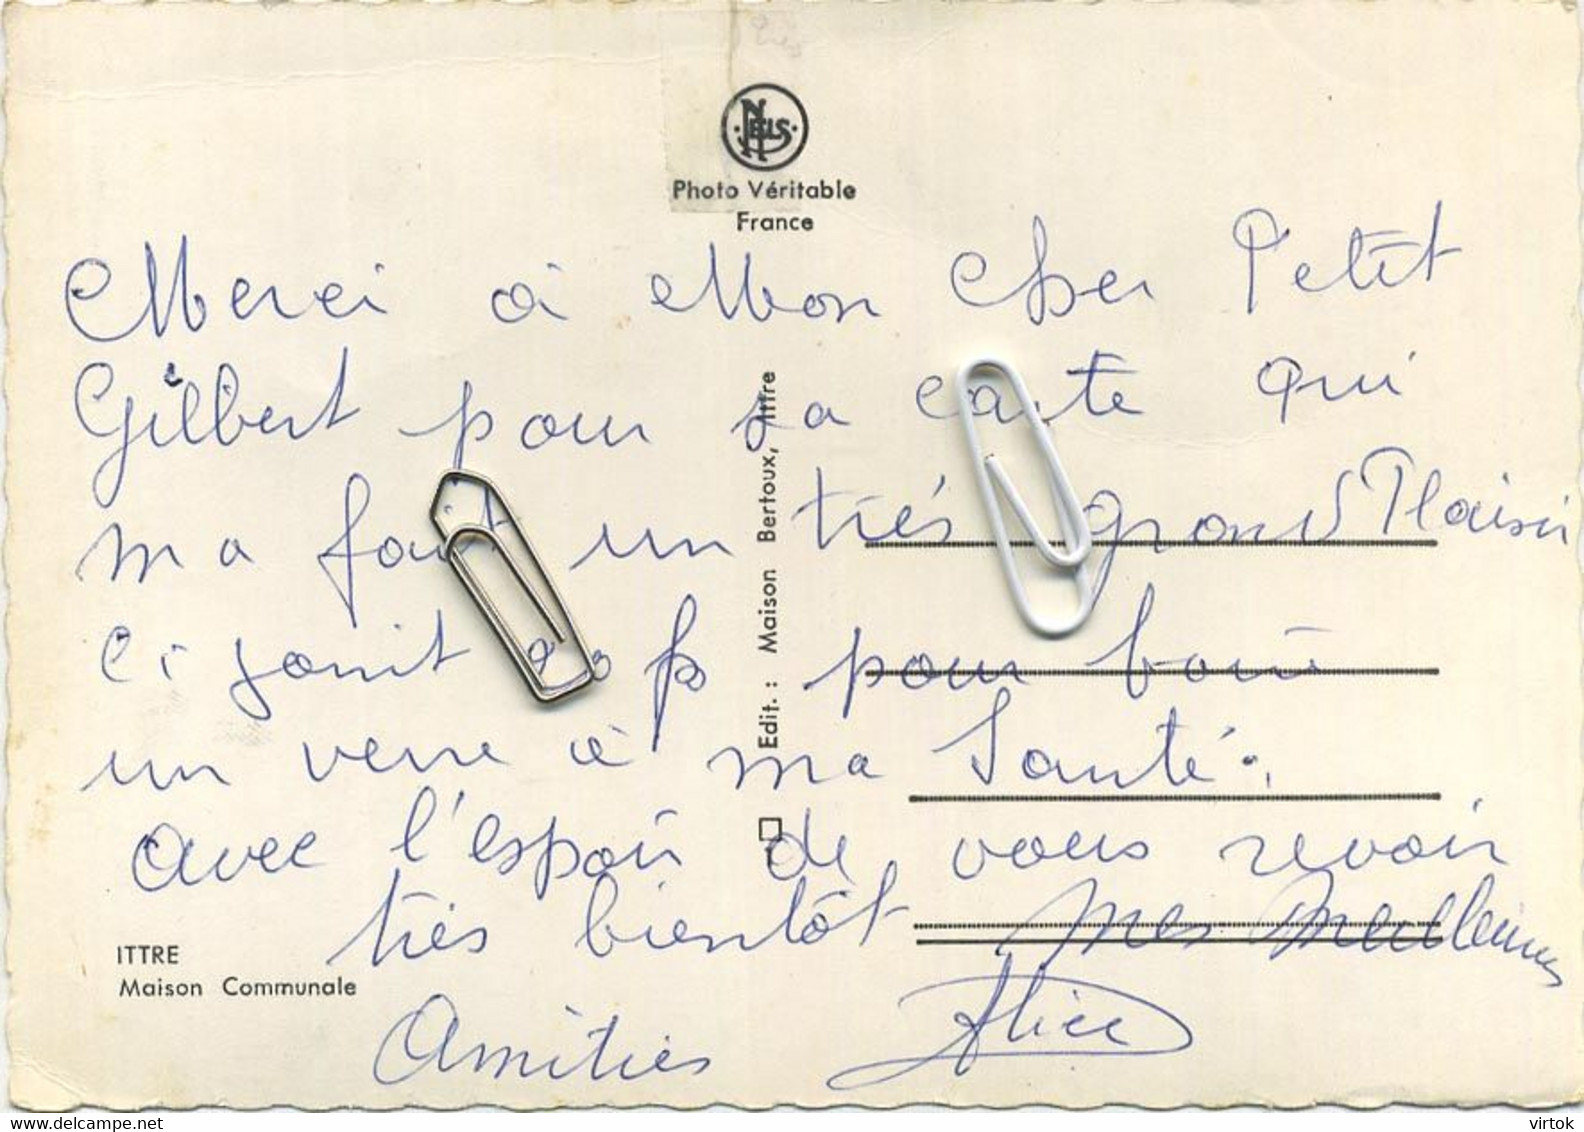 NELS
Photo Véritable
France
Merci à Mon cher Petit
Gilbert pour sa carte qui
ma fait un très grand Plaisir
Ci joint 20 fs pour boire
un verre à ma Santé.
avec l'espoir de vous revoir
très bientôt Mes Meilleures
Amitiés Alice
Edit. : Maison Bertoux, Ittre
ITTRE
Maison Communale
delcampe.net
virtok